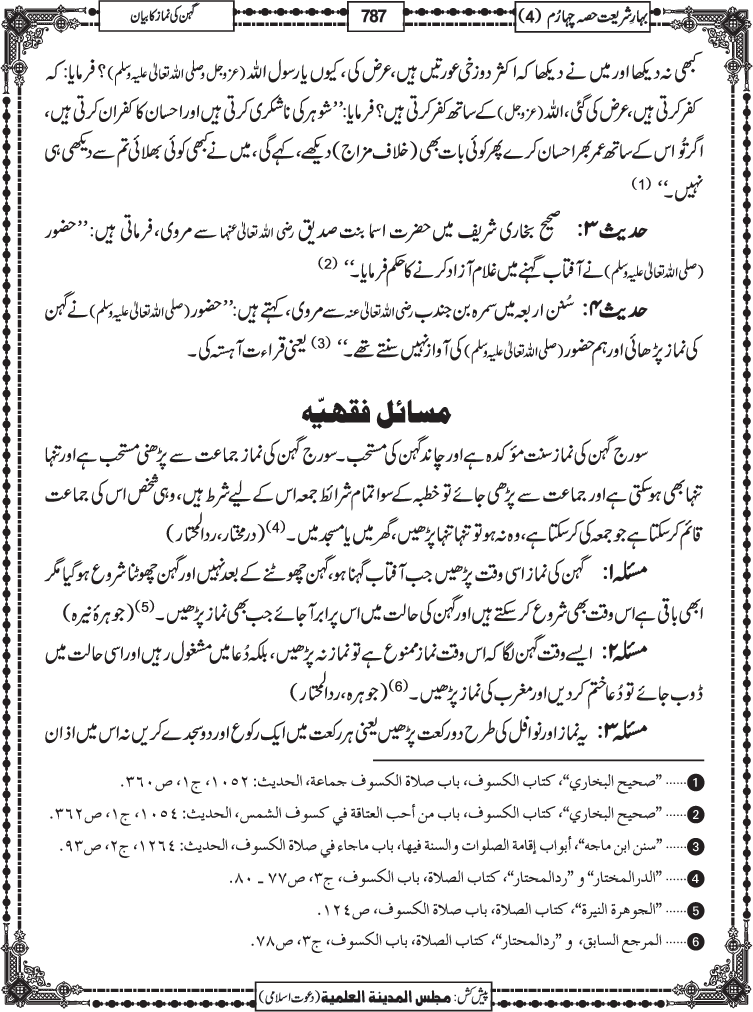 بہارِ شریعت حصہ چہارُم (4)
787
گہن کی نماز کا بیان
کبھی نہ دیکھا اور میں نے دیکھا کہ اکثر دوزخی عورتیں ہیں، عرض کی، کیوں یا رسول اللہ (عزوجل وصلی اللہ تعالیٰ علیہ وسلم)؟ فرمایا: کہ
کفر کرتی ہیں، عرض کی گئی، اللہ (عزوجل) کے ساتھ کفر کرتی ہیں؟ فرمایا: ’’شوہر کی ناشکری کرتی ہیں اور احسان کا کفران کرتی ہیں،
اگر تُو اس کے ساتھ عمر بھر احسان کرے پھر کوئی بات بھی (خلاف مزاج) دیکھے، کہے گی، میں نے کبھی کوئی بھلائی تم سے دیکھی ہی
نہیں۔‘‘ (1)
حدیث ۳: صحیح بخاری شریف میں حضرت اسما بنت صدیق رضی اللہ تعالیٰ عنہا سے مروی، فرماتی ہیں: ’’حضور
(صلی اللہ تعالیٰ علیہ وسلم) نے آفتاب گہنے میں غلام آزاد کرنے کا حکم فرمایا۔‘‘ (2)
حدیث ۴: سُنن اربعہ میں سمرہ بن جندب رضی اللہ تعالیٰ عنہ سے مروی، کہتے ہیں: ’’حضور (صلی اللہ تعالیٰ علیہ وسلم) نے گہن
کی نماز پڑھائی اور ہم حضور (صلی اللہ تعالیٰ علیہ وسلم) کی آواز نہیں سنتے تھے۔‘‘ (3) یعنی قراءت آہستہ کی۔
مسائل فقہیّہ
سورج گہن کی نماز سنت مؤکدہ ہے اور چاند گہن کی مستحب۔ سورج گہن کی نماز جماعت سے پڑھنی مستحب ہے اور تنہا
تنہا بھی ہوسکتی ہے اور جماعت سے پڑھی جائے تو خطبہ کے سوا تمام شرائط جمعہ اس کے لیے شرط ہیں، وہی شخص اس کی جماعت
قائم کرسکتا ہے جو جمعہ کی کرسکتا ہے، وہ نہ ہو تو تنہا تنہا پڑھیں، گھر میں یا مسجد میں۔ (4) (درمختار، ردالمحتار)
مسئلہ ۱: گہن کی نماز اسی وقت پڑھیں جب آفتاب گہنا ہو، گہن چھوٹنے کے بعد نہیں اور گہن چھوٹنا شروع ہوگیا مگر
ابھی باقی ہے اس وقت بھی شروع کرسکتے ہیں اور گہن کی حالت میں اس پر ابر آجائے جب بھی نماز پڑھیں۔ (5) (جوہرۂ نیرہ)
مسئلہ ۲: ایسے وقت گہن لگا کہ اس وقت نماز ممنوع ہے تو نماز نہ پڑھیں، بلکہ دُعا میں مشغول رہیں اور اسی حالت میں
ڈوب جائے تو دُعا ختم کر دیں اور مغرب کی نماز پڑھیں۔ (6) (جوہرہ، ردالمحتار)
مسئلہ ۳: یہ نماز اور نوافل کی طرح دو رکعت پڑھیں یعنی ہر رکعت میں ایک رکوع اور دو سجدے کریں نہ اس میں اذان
1 ...... ”صحيح البخاري“، كتاب الكسوف، باب صلاة الكسوف جماعة، الحديث: ١٠٥٢، ج١، ص٣٦٠.
2 ...... ”صحيح البخاري“، كتاب الكسوف، باب من أحب العتاقة في كسوف الشمس، الحديث: ١٠٥٤، ج١، ص٣٦٢.
3 ...... ”سنن ابن ماجه“، أبواب إقامة الصلوات والسنة فيها، باب ماجاء في صلاة الكسوف، الحديث: ١٢٦٤، ج٢، ص٩٣.
4 ...... ”الدرالمختار“ و ”ردالمحتار“، كتاب الصلاة، باب الكسوف، ج٣، ص٧٧ ـ ٨٠.
5 ...... ”الجوهرة النيرة“، كتاب الصلاة، باب صلاة الكسوف، ص١٢٤.
6 ...... المرجع السابق، و ”ردالمحتار“، كتاب الصلاة، باب الكسوف، ج٣، ص٧٨.
پیش کش: مجلس المدینۃ العلمیۃ (دعوت اسلامی)